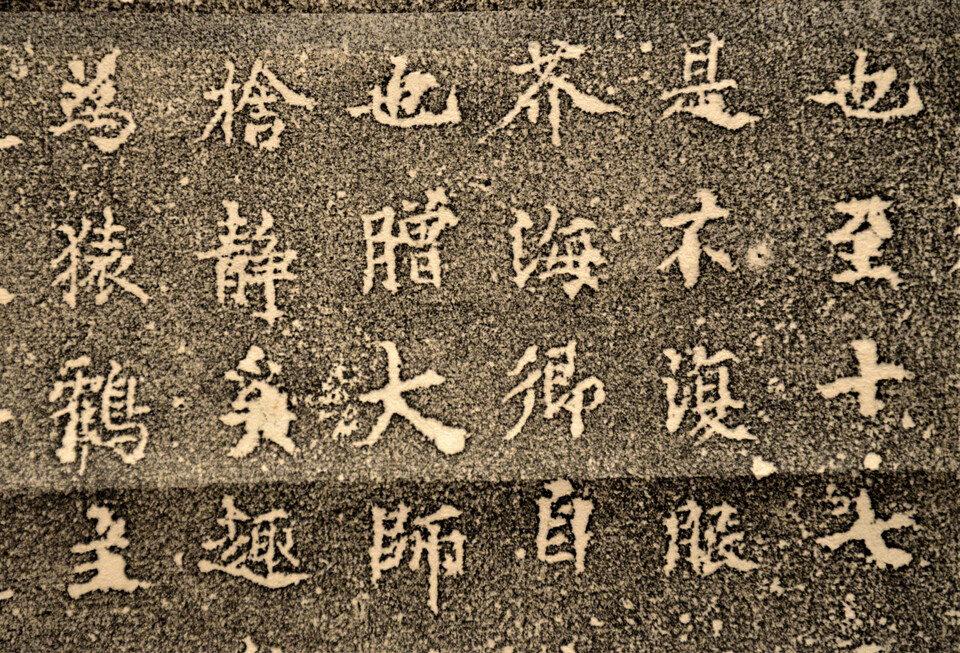 也至十七
是不復服
芥海自
也贈大師
捨靜奚趣
為猿鶴主